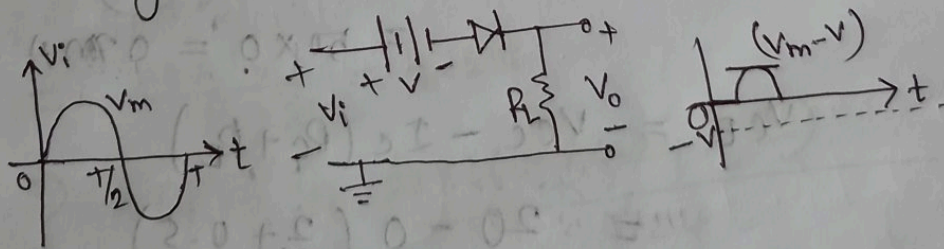 Vi
Vm
0
T/2
T
t
+
+ V -
Vi
-
RL
+
Vo
-
(Vm-V)
0
-V
t